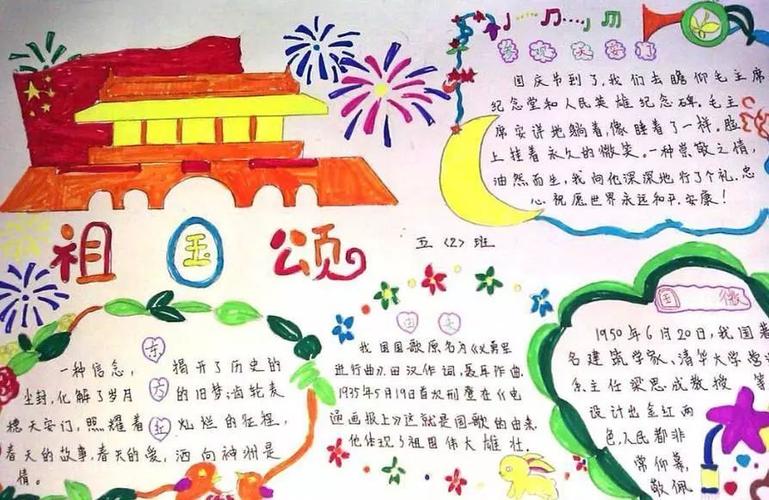 祖国颂
五〈2〉班
参观天安门
国庆节到了,我们去瞻仰毛主席
纪念堂和人民英雄纪念碑。毛主
席安详地躺着,像睡着了一样,脸
上挂着永久的微笑。一种崇敬之情,
油然而生,我向他深深地行了个礼。忠
心祝愿世界永远和平、安康!
东方红
一种信念,揭开了历史的
尘封,化解了岁月的旧梦;齿轮麦
穗天安门,照耀着灿烂的征程,
春天的故事,春天的爱,洒向神州是
情。
我国国歌原名为《义勇军
进行曲》。田汉作词,聂耳作曲。
1935年5月19日首次刊登在《电
通画报上》这就是国歌的由来
他体现了祖国伟大雄壮。
国徽
1950年6月20日,我国著
名建筑学家、清华大学营
系主任梁思成教授等
设计出金红两
色,人民都非
常仰慕,
敬佩